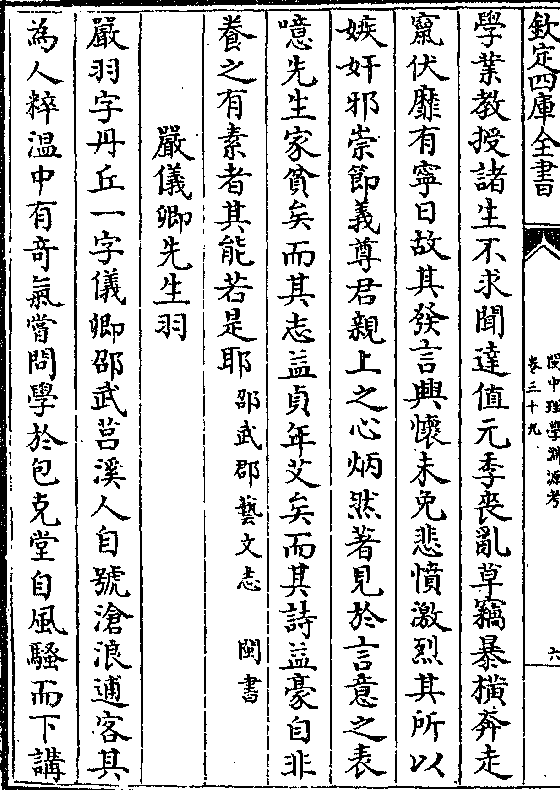 欽定四庫全書
閩中理學淵源考
卷三十九
六
學業教授諸生不求聞達值元季喪亂草竊暴橫奔走
竄伏靡有寧日故其發言興懷未免悲憤激烈其所以
嫉奸邪崇節義尊君親上之心炳然著見於言意之表
噫先生家貧矣而其志益貞年艾矣而其詩益豪自非
養之有素者其能若是耶 邵武郡藝文志 閩書
嚴儀卿先生羽
嚴羽字丹丘一字儀卿邵武莒溪人自號滄浪逋客其
為人粹温中有奇氣嘗問學於包克堂自風騷而下講